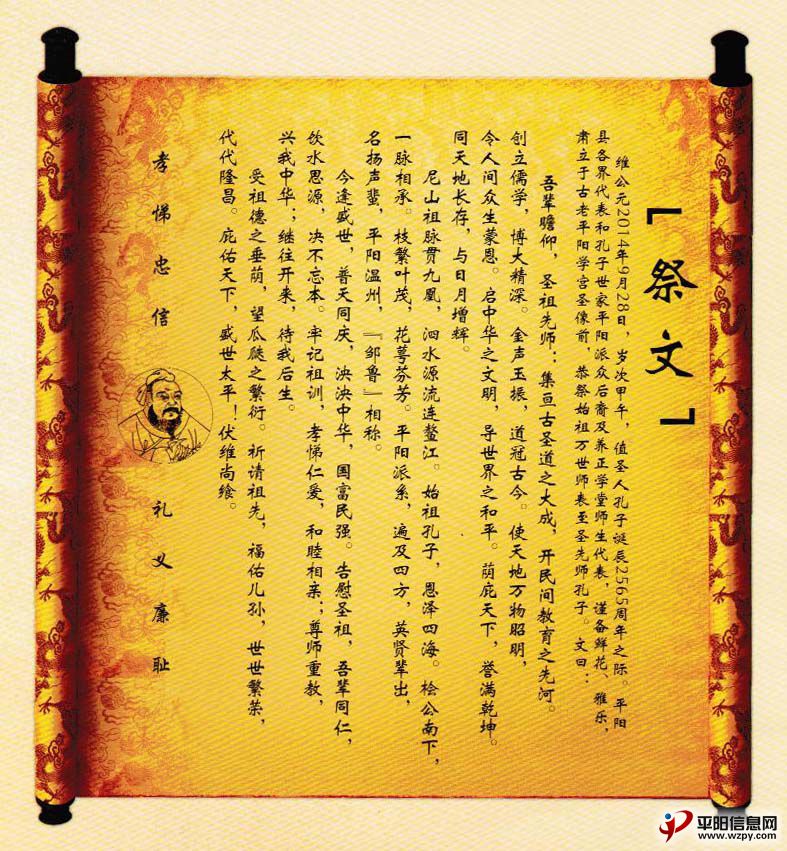 「祭文」
维公元2014年9月28日，岁次甲午，值圣人孔子诞辰2565周年之际。平阳
县各界代表和孔子世家平阳派众后裔及养正学堂师生代表，谨备鲜花、雅乐，
肃立于古老平阳学宫圣像前，恭祭始祖万世师表至圣先师孔子。文曰：
吾辈瞻仰，圣祖先师：集亘古圣道之大成，开民间教育之先河。
创立儒学，博大精深。金声玉振，道冠古今。使天地万物昭明，
令人间众生蒙恩。启中华之文明，导世界之和平。荫庇天下，誉满乾坤。
同天地长存，与日月增辉。
尼山祖脉贯九凰，泗水源流连鳌江。始祖孔子，恩泽四海。桧公南下，
一脉相承。枝繁叶茂，花萼芬芳。平阳派系，遍及四方，英贤辈出，
名扬声蜚，平阳温州，『邹鲁』相称。
今逢盛世，普天同庆，泱泱中华，国富民强。告慰圣祖，吾辈同仁，
饮水思源，决不忘本。牢记祖训，孝悌仁爱，和睦相亲；尊师重教，
兴我中华；继往开来，待我后生。
受祖德之垂荫，望瓜瓞之繁衍。祈请祖先，福佑儿孙，世世繁荣，
代代隆昌。庇佑天下，盛世太平！伏维尚飨。
孝悌忠信 礼义廉耻
平阳信息网
www.wzpy.com